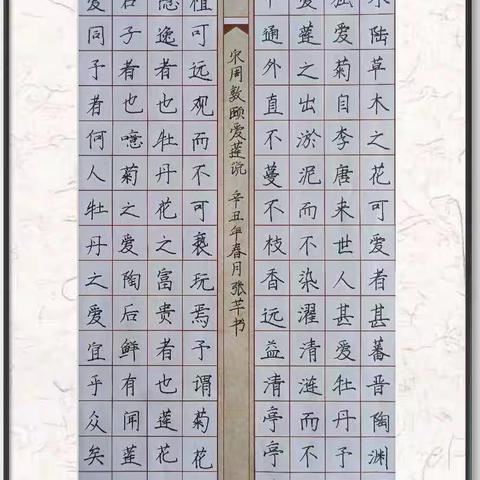 水陆草木之花可爱者甚蕃晋陶渊
独爱菊自李唐来世人甚爱牡丹予
爱莲之出淤泥而不染濯清涟而不
中通外直不蔓不枝香远益清亭亭
宋周敦颐爱莲说 辛丑年春月张苹书
植可远观而不可亵玩焉予谓菊花
隐逸者也牡丹花之富贵者也莲花
君子者也噫菊之爱陶后鲜有闻莲
爱同予者何人牡丹之爱宜乎众矣